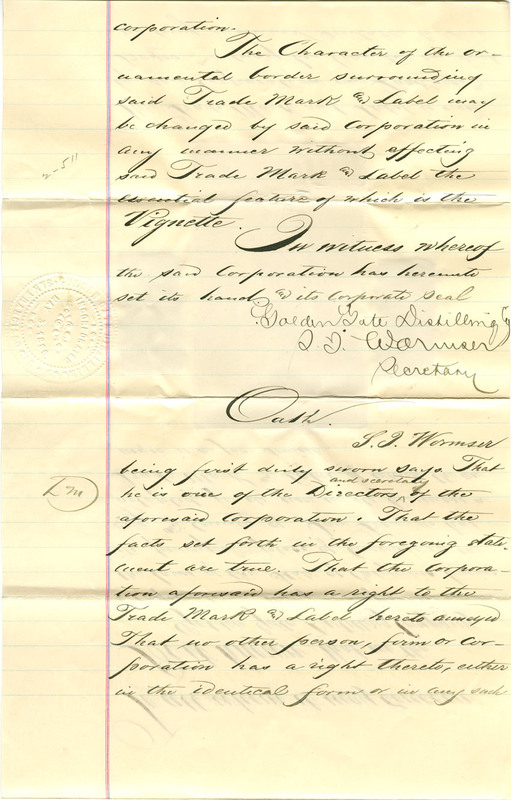 corporation.
The Character of the or-
namental border surrounding
said Trade Mark & Label may
be changed by said Corporation in
any manner without effecting
said Trade Mark & Label the
essential feature of which is the
Vignette.
In witness whereof
the said Corporation has hereunto
set its hand & its Corporate Seal
Golden Gate Distilling Co
S. I. Wormser
Secretary
Oath.
S. I. Wormser
being first duly sworn says. That
and secretary
he is one of the Directors of the
aforesaid Corporation. That the
facts set forth in the foregoing state-
ment are true. That the Corpora-
tion aforesaid has a right to the
Trade Mark & Label hereto annexed
That no other person, firm or Cor-
poration has a right thereto, either
in the identical form or in any such